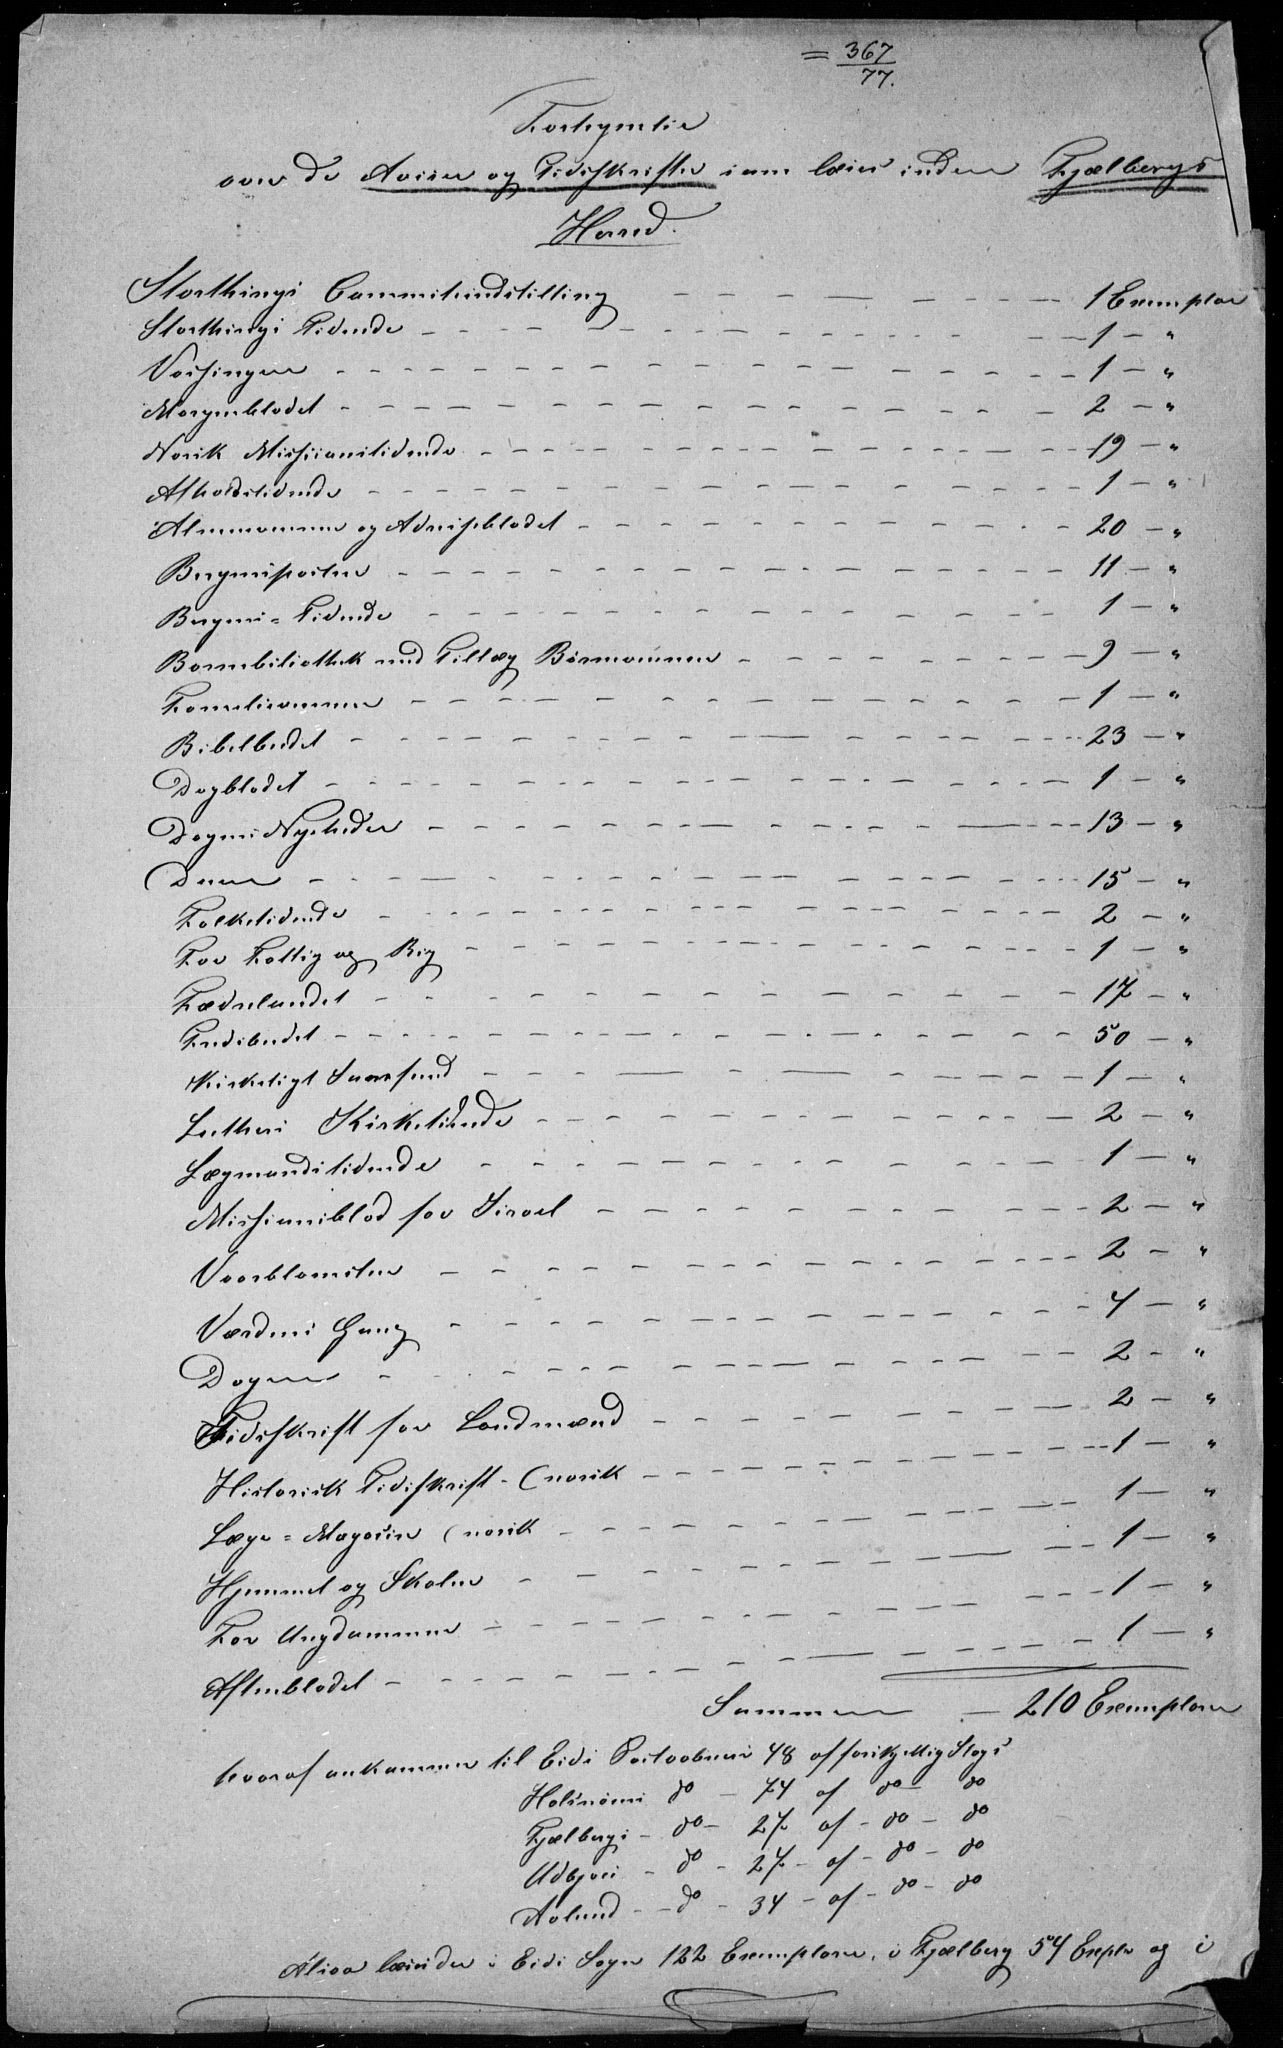 = 367
77.
Fortegnelse
over de Aviser og Tidsskrifter som læses inden Fjælbergs
Herred.
Storthings Committeindstilling - - - 1 Exemplar
Storthings Tidende - - - 1 - "
Vossingen - - - 1 - "
Morgenbladet - - - 2 - "
Norsk Missionstidende - - - 19 - "
Afholdstidende - - - 1 - "
Almuevennen og Adressebladet - - - 20 - "
Bergensposten - - - 11 - "
Bergens=Tidende - - - 1 - "
Børnebibliothek med Tillæg Børnevennen - - - 9 - "
Familievennen - - - 1 - "
Bibelbudet - - - 23 - "
Dagbladet - - - 1 - "
Dagens Nyheder - - - 13 - "
Duen - - - 15 - "
Folketidende - - - 2 - "
For Fattig og Rig - - - 1 - "
Fædrelandet - - - 17 - "
Fredsbudet - - - 50 - "
Kirkeligt Samfund - - - 1 - "
Luthersk Kirketidende - - - 2 - "
Lægmandstidende - - - 1 - "
Missionsblad for Israel - - - 2 - "
Vaarblomster - - - 2 - "
Verdens Gang - - - 4 - "
Dagen - - - 2 - "
Tidsskrift for Landmænd - - - 2 - "
Historisk Tidsskrift - (norsk - - - 1 - "
Læge=Magasin (norsk - - - 1 - "
Hjemmet og Skolen - - - 1 - "
For Ungdommen - - - 1 - "
Aftenbladet - - - 1 - "
Summa - 210 Exemplarer
hvoraf ankommer til Eids Postaabneri 48 af forskjellig Slags
Halsnøens do - 74 af do - do
Fjælbergs - do - 27 af - do - do
Udbjoes - do - 27 - af - do - do
Aalund - do - 34 - af - do - do
Altsaa læses der i Eids Sogn 122 Exemplarer, i Fjælberg 54 Explr og i